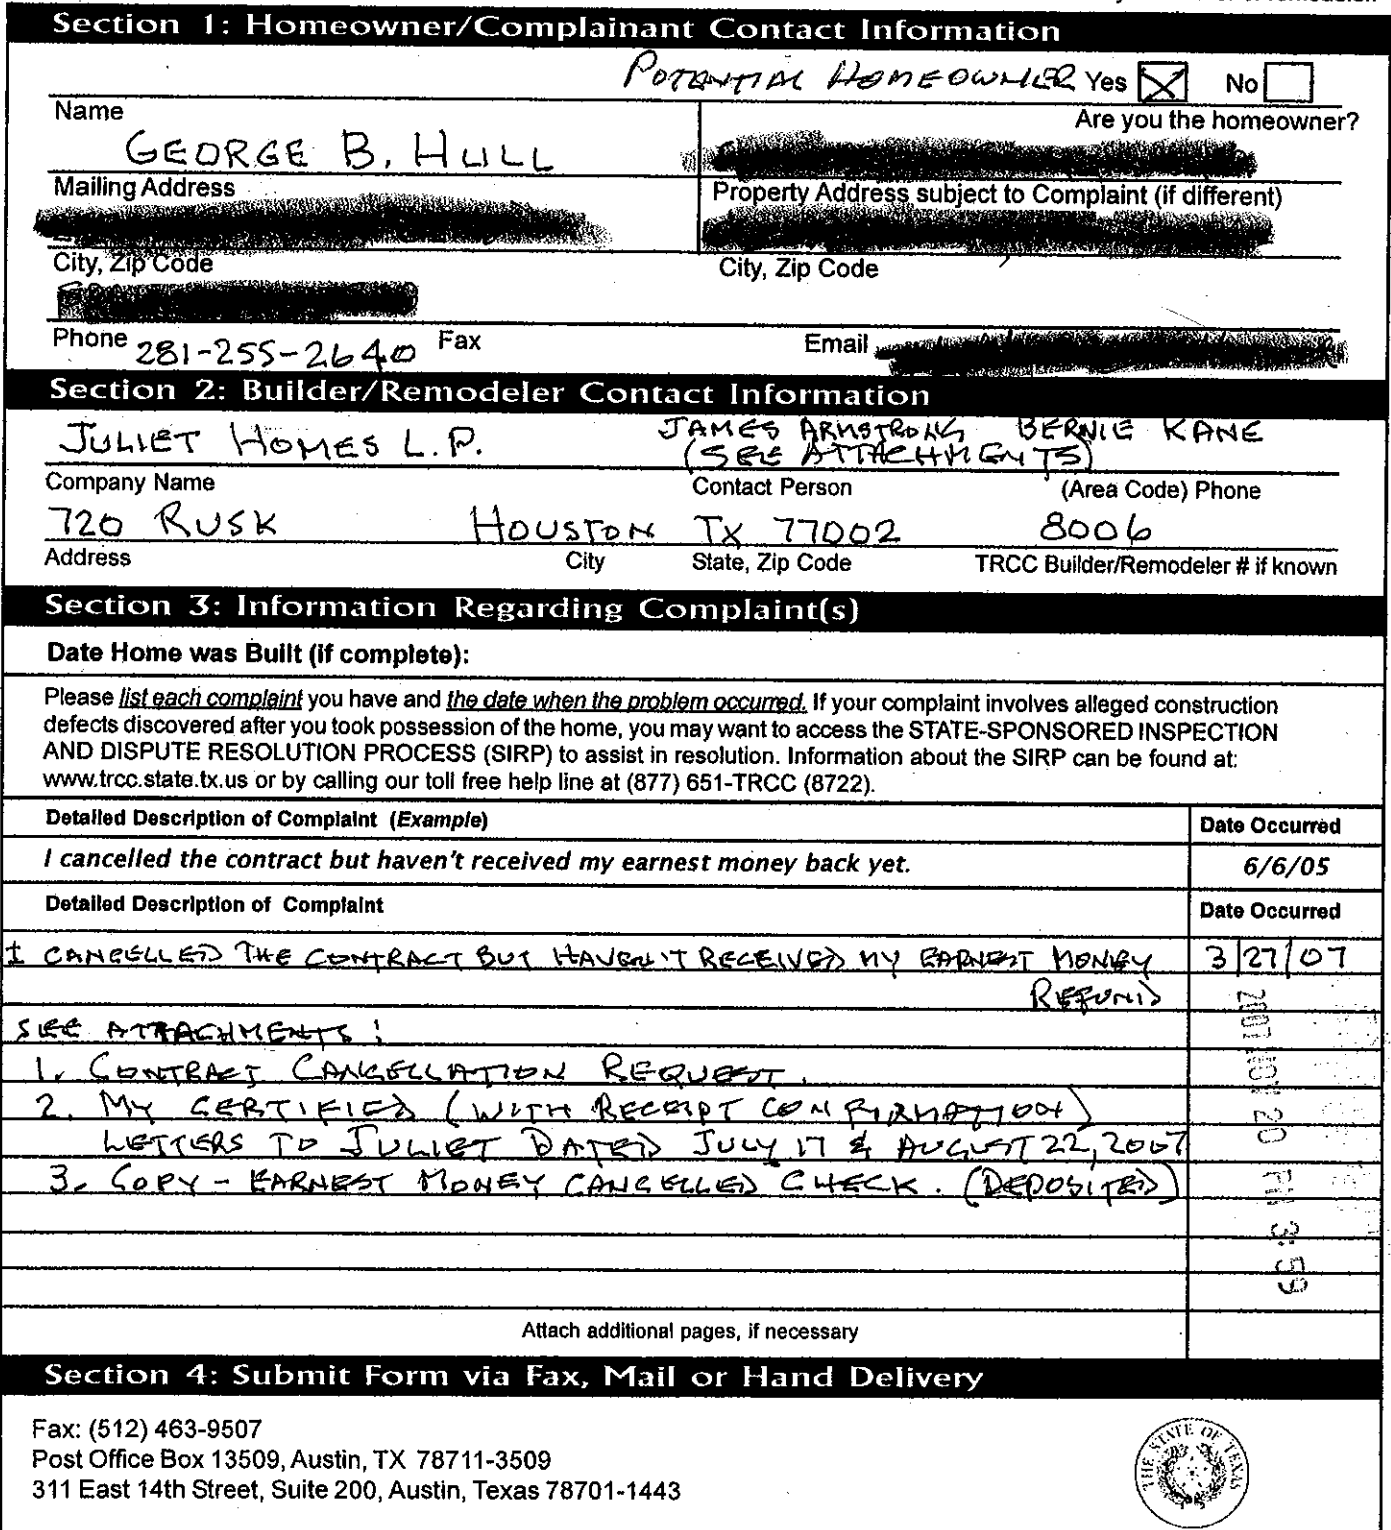 Section 1: Homeowner/Complainant Contact Information
POTENTIAL HOMEOWNER Yes No
Name
Are you the homeowner?
GEORGE B. HULL
Mailing Address
Property Address subject to Complaint (if different)
City, Zip Code
City, Zip Code
Phone 281-255-2640 Fax
Email
Section 2: Builder/Remodeler Contact Information
JULIET HOMES L.P.
JAMES ARMSTRONG BERNIE KANE
(SEE ATTACHMENTS)
Company Name
Contact Person
(Area Code) Phone
720 RUSK HOUSTON TX 77002 8006
Address City State, Zip Code TRCC Builder/Remodeler # if known
Section 3: Information Regarding Complaint(s)
Date Home was Built (if complete):
Please list each complaint you have and the date when the problem occurred. If your complaint involves alleged construction
defects discovered after you took possession of the home, you may want to access the STATE-SPONSORED INSPECTION
AND DISPUTE RESOLUTION PROCESS (SIRP) to assist in resolution. Information about the SIRP can be found at:
www.trcc.state.tx.us or by calling our toll free help line at (877) 651-TRCC (8722).
Detailed Description of Complaint (Example) Date Occurred
I cancelled the contract but haven't received my earnest money back yet. 6/6/05
Detailed Description of Complaint Date Occurred
I CANCELLED THE CONTRACT BUT HAVEN'T RECEIVED MY EARNEST MONEY 3/27/07
REFUND
SEE ATTACHMENTS:
1. CONTRACT CANCELLATION REQUEST.
2. MY CERTIFIED (WITH RECEIPT CONFIRMATION)
LETTERS TO JULIET DATED JULY 17 & AUGUST 22, 2007
3. COPY - EARNEST MONEY CANCELLED CHECK. (DEPOSITED)
2007 NOV 20 PM 3:59
Attach additional pages, if necessary
Section 4: Submit Form via Fax, Mail or Hand Delivery
Fax: (512) 463-9507
Post Office Box 13509, Austin, TX 78711-3509
311 East 14th Street, Suite 200, Austin, Texas 78701-1443
THE STATE OF TEXAS